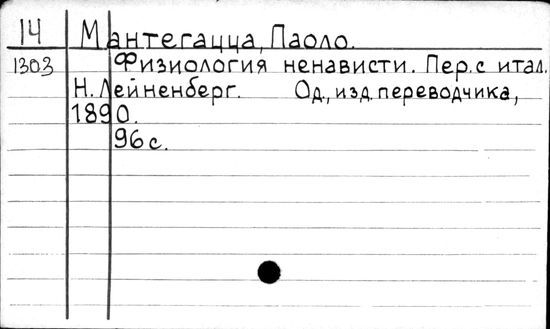 14 Мантегацца, Паоло.
1303 Физиология ненависти. Пер. с итал.
Н. Лейненберг. Од., изд. переводчика,
1890.
96 с.